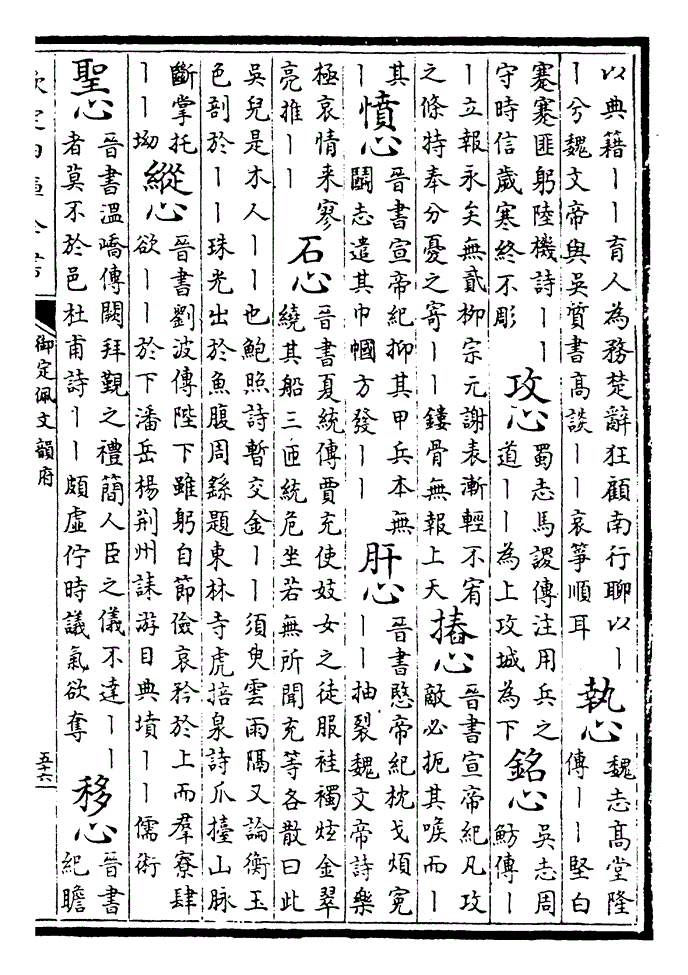 以典籍丨丨育人為務楚辭狂顧南行聊以丨
丨兮魏文帝與吳質書高談丨丨哀箏順耳
執心
魏志高堂隆
傳丨丨堅白
蹇蹇匪躬陸機詩丨丨
守時信歲寒終不彫
攻心
蜀志馬謖傳注用兵之
道丨丨為上攻城為下
銘心
吳志周
魴傳丨
丨立報永矣無貳柳宗元謝表漸輕不宥
之條特奉分憂之寄丨丨鏤骨無報上天
摏心
晉書宣帝紀凡攻
敵必扼其喉而丨
其
丨
憤心
晉書宣帝紀抑其甲兵本無
鬬志遺其巾幗方發丨丨
肝心
晉書愍帝紀枕戈煩冤
丨丨抽裂魏文帝詩樂
極哀情来寥
亮推丨丨
石心
晉書夏統傳賈充使妓女之徒服袿襡炫金翠
繞其船三匝統危坐若無所聞充等各散曰此
吳兒是木人丨丨也鮑照詩暫交金丨丨須臾雲雨隔又論衡玉
色剖於丨丨珠光出於魚腹周繇題東林寺虎掊泉詩爪擡山脉
斷掌托
丨丨坳
縱心
晉書劉波傳陛下雖躬自節儉哀矜於上而羣寮肆
欲丨丨於下潘岳楊荆州誄游目典墳丨丨儒術
聖心
晉書溫嶠傳闕拜覲之禮簡人臣之儀不達丨丨
者莫不於邑杜甫詩丨丨頗虛佇時議氣欲奪
移心
晉書
紀瞻
欽定四庫全書
御定佩文韻府
五十六